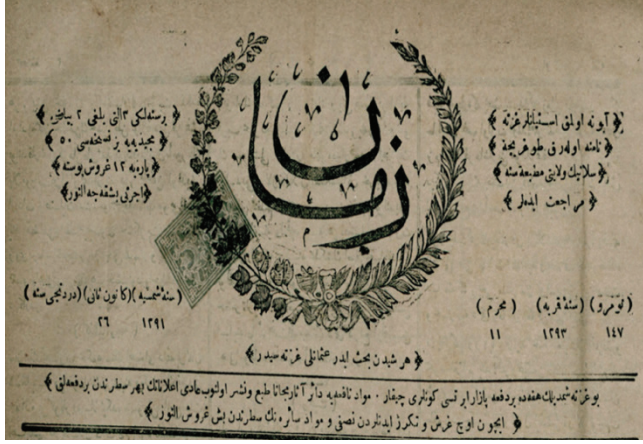 زمان
آبونه اولمق استيانلر غزته
نامنه اوله‌رق طوغريجه
سلانيك ولايتى مطبعه سنه
مراجعت ايدرلر
برسنه‌لكى ٣ التى ايلغى ٢ بياض
مجيديه‌يه بر نسخه‌سى ٥٠
پاره‌يه ١٢ غروش پوسته
اجرتى بشقه‌جه النور
(نومرو) (سنۀ قمريه) (محرم)
١٤٧ ١٢٩٣ ١١
(سنۀ شمسيه) (كانون ثانى) (دردنجى سنه)
١٢٩١ ٢٦
هر شيدن بحث ايدر عثمانلى غزته سيدر
بو غزته شمديلك هفته‌ده بر دفعه پازار ايرتسى كونلرى چيقار . مواد نافعه‌يه دائر آثار مجانا طبع ونشر اولنوب عادى اعلاناتك بهر سطرندن بر دفعه‌لق
ايچون اوچ غرش و تكرر ايدنلردن نصفى و مواد سائره‌نك سطرندن بش غروش النور